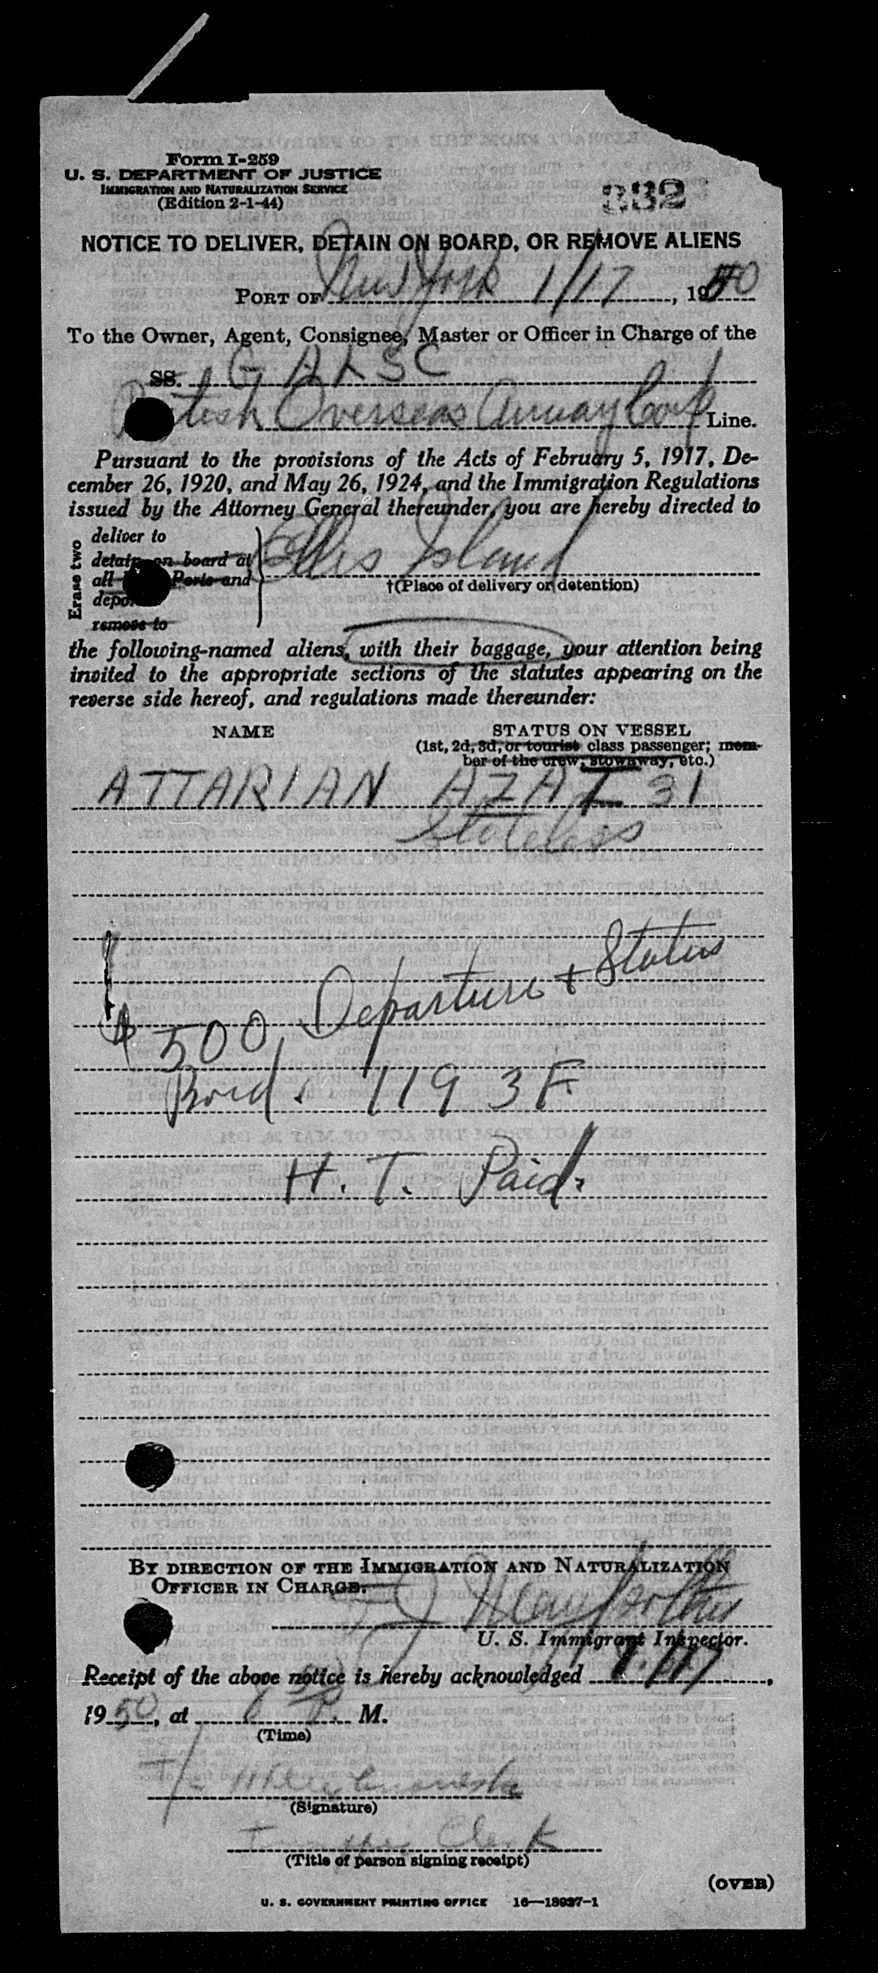 Form I-259
U. S. DEPARTMENT OF JUSTICE
IMMIGRATION AND NATURALIZATION SERVICE
(Edition 2-1-44)
332
NOTICE TO DELIVER, DETAIN ON BOARD, OR REMOVE ALIENS
PORT OF New York 1/17, 1950
To the Owner, Agent, Consignee, Master or Officer in Charge of the
SS. G ALSC
British Overseas Airway Corp Line.
Pursuant to the provisions of the Acts of February 5, 1917, De-
cember 26, 1920, and May 26, 1924, and the Immigration Regulations
issued by the Attorney General thereunder, you are hereby directed to
Erase two
deliver to
detain on board at
all Ports and
remove to
Ellis Island
†(Place of delivery or detention)
the following-named aliens, with their baggage, your attention being
invited to the appropriate sections of the statutes appearing on the
reverse side hereof, and regulations made thereunder:
NAME STATUS ON VESSEL
(1st, 2d, 3d, or tourist class passenger; mem-
ber of the crew, stowaway, etc.)
ATTARIAN AZAT 31
Stateless
$500 Departure + Status
Bond. 1193F
H. T. Paid.
BY DIRECTION OF THE IMMIGRATION AND NATURALIZATION
OFFICER IN CHARGE.
U. S. Immigrant Inspector.
Receipt of the above notice is hereby acknowledged 1/17,
1950, at P. M.
(Time)
(Signature)
Clerk
(Title of person signing receipt)
(OVER)
U. S. GOVERNMENT PRINTING OFFICE 16—18937-1